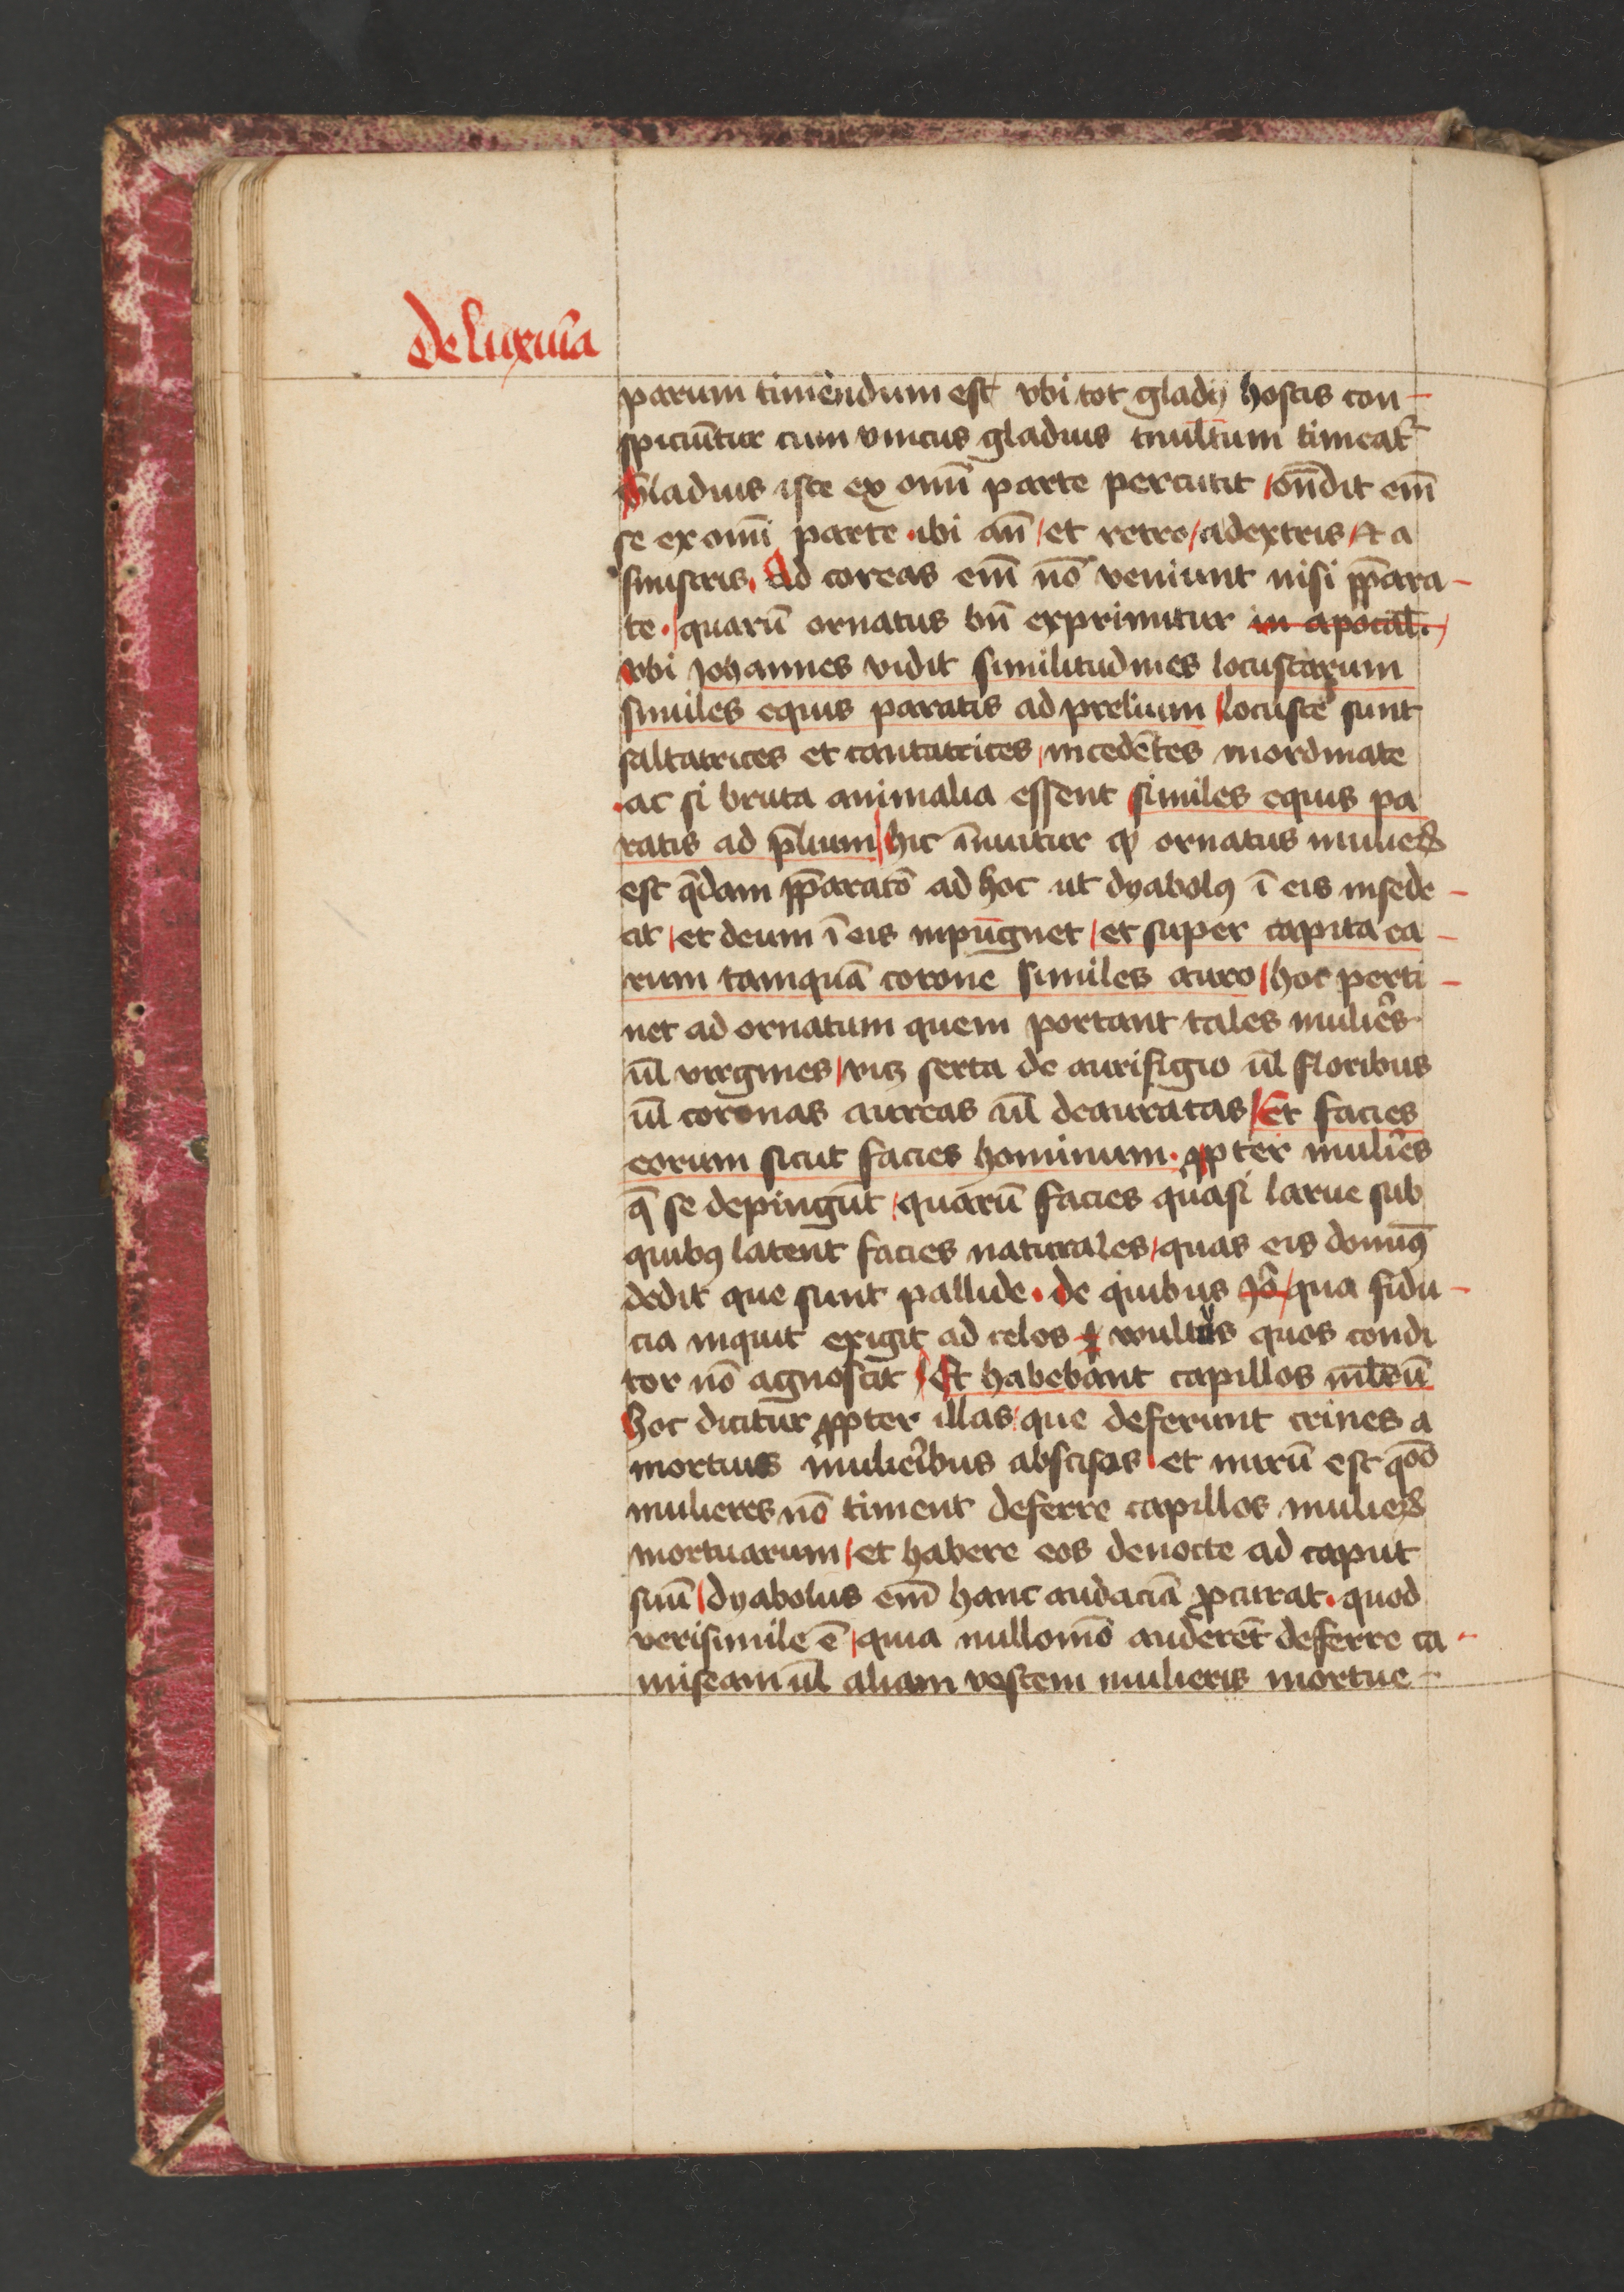 de luxuīa
parum timendum est vbi tot gladij hostis con-
spiciūtur cum vnicus gladius multum timeat᷑
Gladius iste ex omī parte percutit / on̄dit em̄
se ex omī parte · ibi an̄ / et retro / adextris / et a
sinistris. Ad coreas em̄ nō veniunt nisi pp̄ara-
te · / quarū ornatus bn̄ exprimitur in apocal̄. /
vbi Johannes vidit similitudines locustarum
similes equis paratis ad prelium / locuste sunt
saltatrices et cantatrices / incedētes inordinate
· ac si bruta animalia essent similes equis pa
ratis ad p̄lium / hic īnuitur ꝙ ornatus mulieꝝ
est q̄dam pp̄aratō ad hoc ut dyabolꝰ ī eis insede-
at / et deum ī eis inpūgnet / et super capita ea-
rum tamquā corone similes auro / hoc perti-
net ad ornatum quem portant tales muliēs
ul̄ virgines / viꝫ serta de aurifigio ul̄ floribus
ul̄ coronas aureas ul̄ deauratas / Et facies
eorum sicut facies hominum · ꝓpter muliēs
q̄ se depingūt / quarū facies quasi larue sub
quibꝰ latent facies naturales / quas eis dominꝰ
dedit que sunt pallide · de quibus Jo᷑ / qua fidu-
cia inquit exigit ad celos vultus quos condi
tor nō agnoscit / Et habebant capillos ml̄ieū
hoc dicitur ꝓpter illas / que deferunt crines a
mortuis mulieribus abscisas / et mirū est qōō
mulieres nō timent deferre capillos mulieꝝ
mortuarum / et habere eos denocte ad caput
suū / dyabolus em̄ hanc audaciā ꝓcurat · quod
verisimile ē / quia nullomō auderēt deferre ca-
miseam ul̄ aliam vestem mulieris mortue-